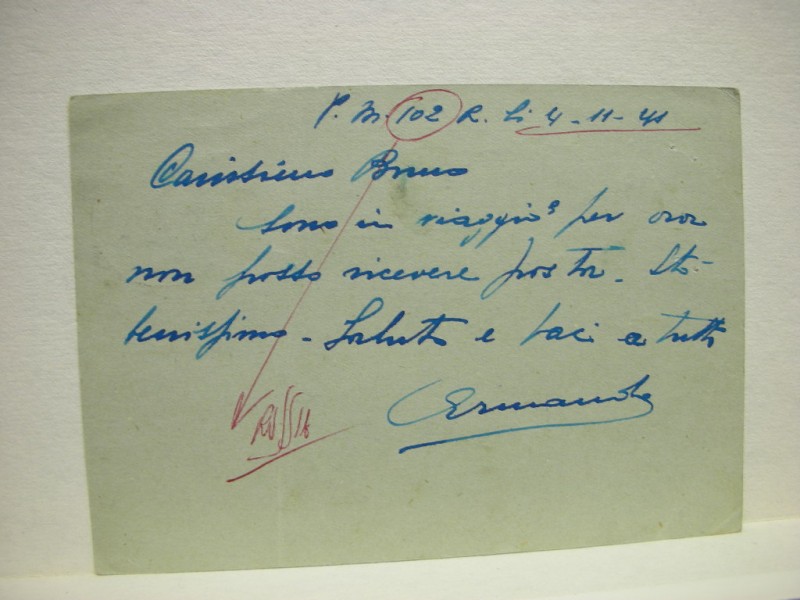 P. M. 102 R. li 4-11-41
Carissimo Bruno
Sono in viaggio e per ora
non posso ricevere posta. Sto
benissimo - Saluti e baci a tutti
Ermando
RUSSIA